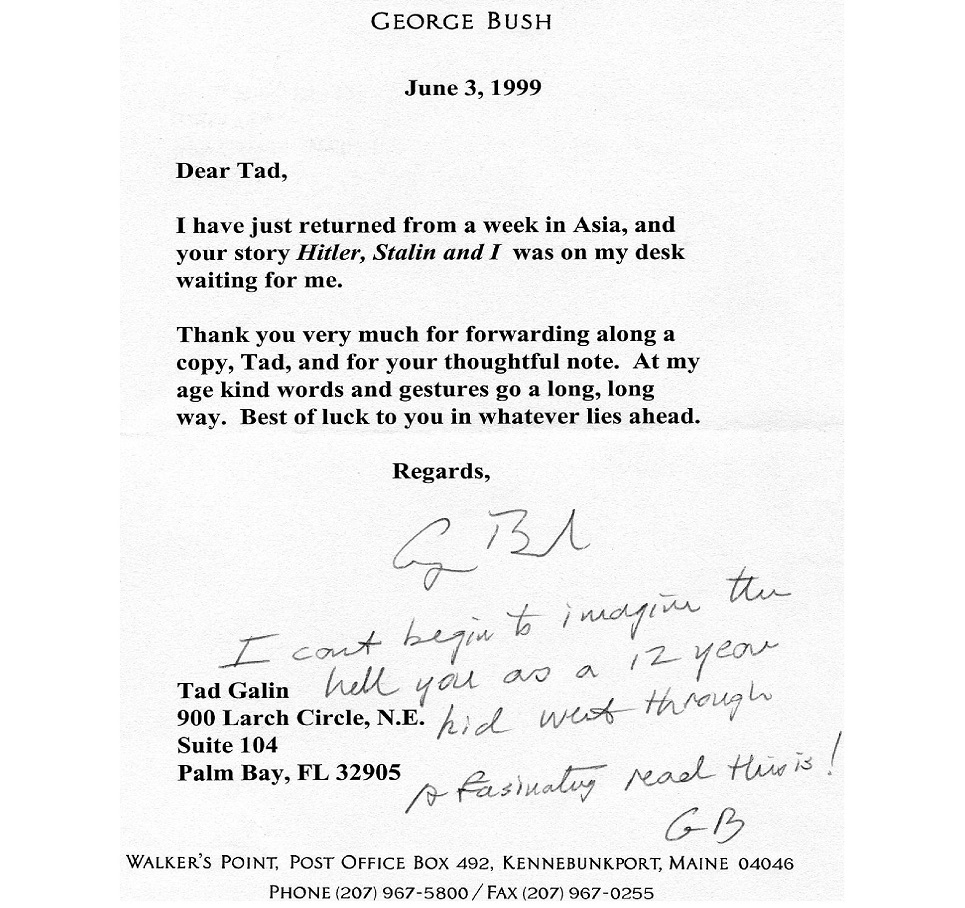 GEORGE BUSH
June 3, 1999
Dear Tad,
I have just returned from a week in Asia, and
your story Hitler, Stalin and I was on my desk
waiting for me.
Thank you very much for forwarding along a
copy, Tad, and for your thoughtful note. At my
age kind words and gestures go a long, long
way. Best of luck to you in whatever lies ahead.
Regards,
G Bush
I cant begin to imagine the
hell you as a 12 year
kid went through
A fasinating read this is!
GB
Tad Galin
900 Larch Circle, N.E.
Suite 104
Palm Bay, FL 32905
WALKER'S POINT, POST OFFICE BOX 492, KENNEBUNKPORT, MAINE 04046
PHONE (207) 967-5800 / FAX (207) 967-0255